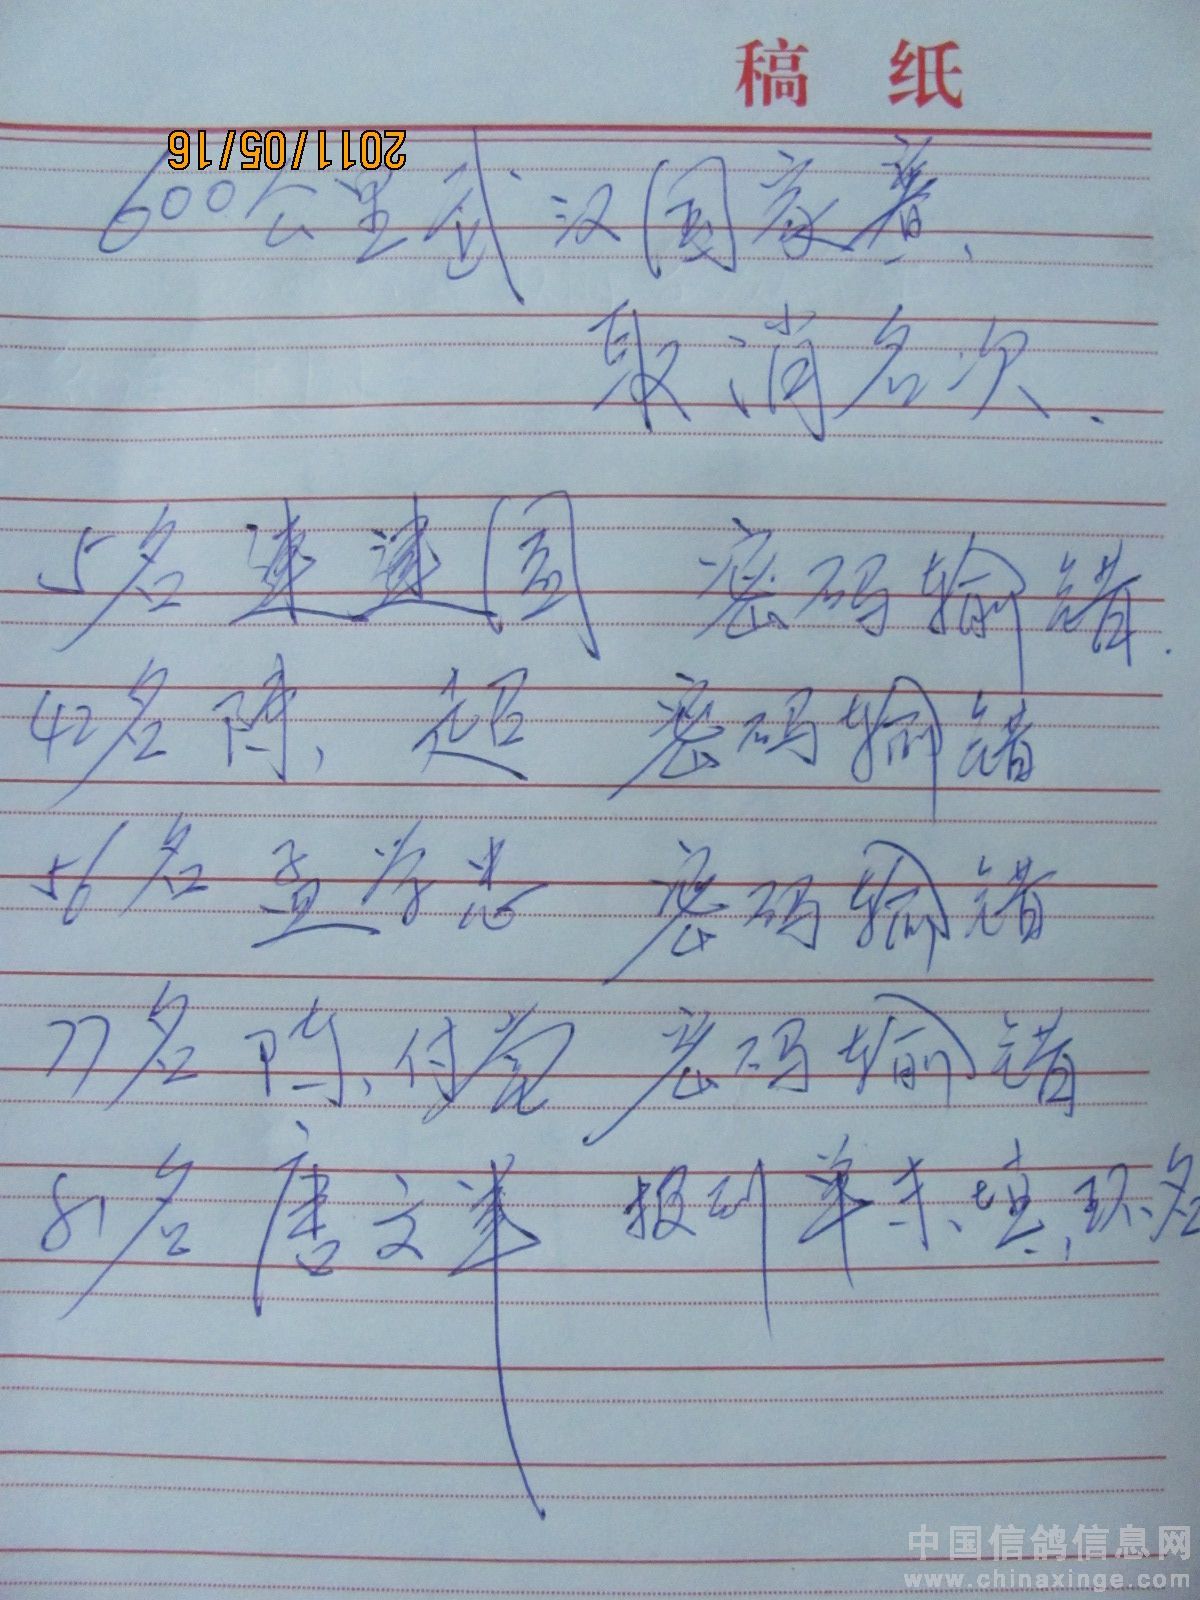 稿 纸
2011/05/16
600公里武汉国家赛、
取消名次.
5名 连连国 密码输错.
42名 陈、超 密码输错
56名 孟学忠 密码输错
77名 陈、付党 密码输错
81名 唐文举 报到单未、填、环、名
中国信鸽信息网
www.chinaxinge.com